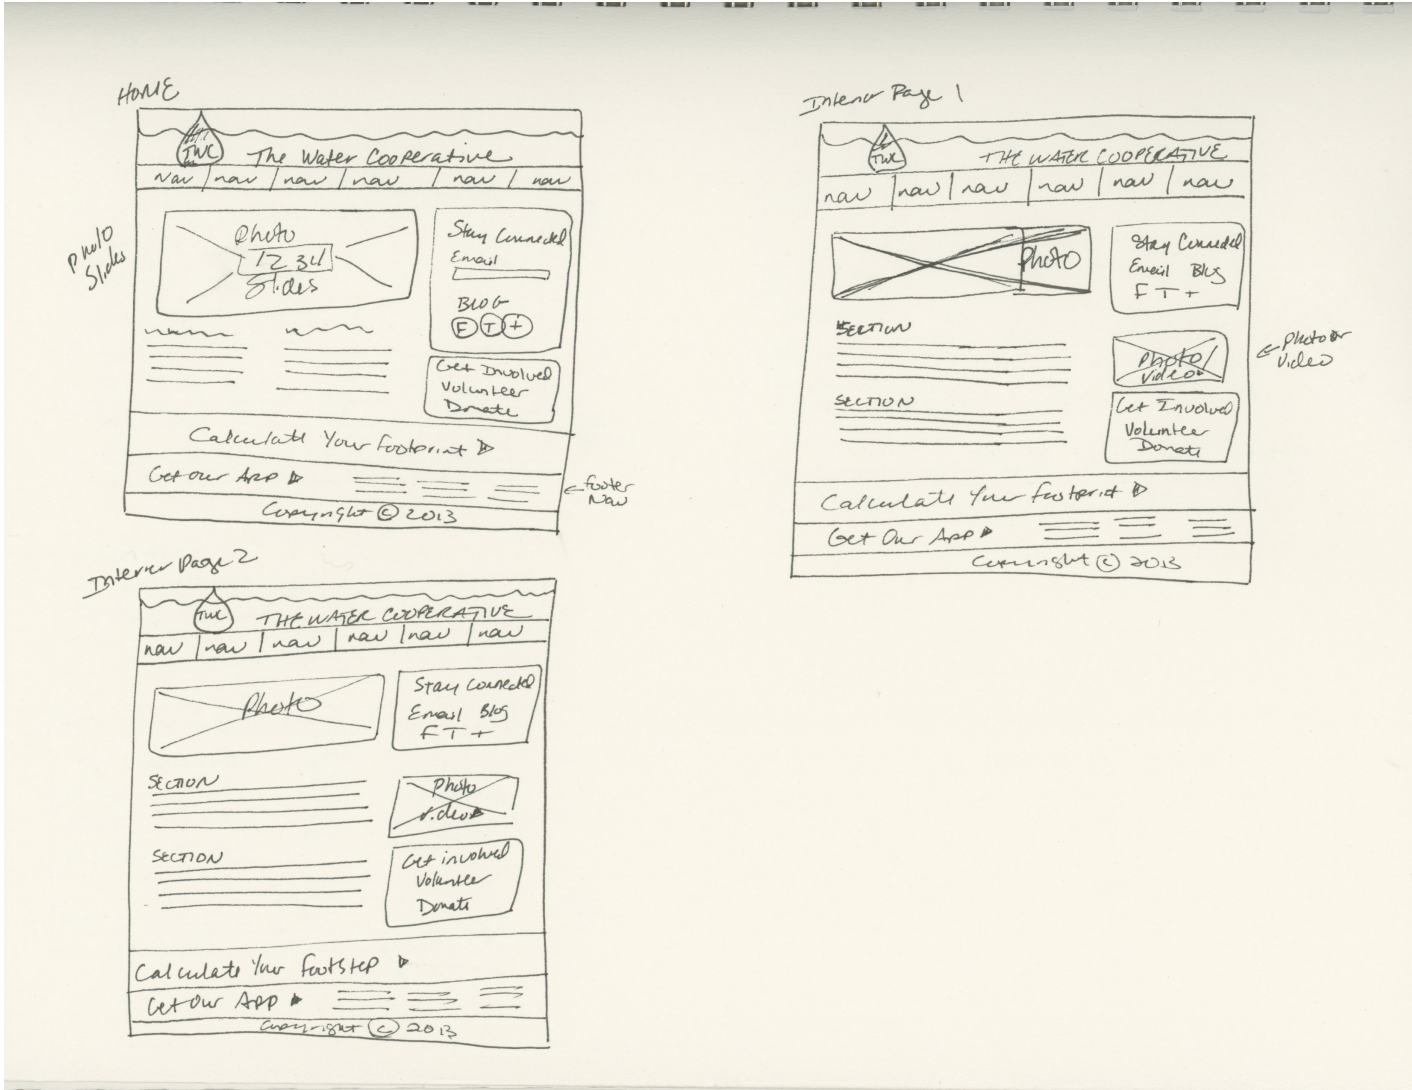 HOME
TWC
The Water Cooperative
Nav nav nav nav nav nav
Photo
Slides
Photo
1 2 3 4
Slides
Stay Connected
Email
BLOG
F T +
Get Involved
Volunteer
Donate
Calculate Your Footprint
Get Our App
Footer
Nav
Copyright © 2013
Interior Page 1
TWC
THE WATER COOPERATIVE
nav nav nav nav nav nav
Photo
Stay Connected
Email Blog
F T +
SECTION
Photo/
Video
Photo or
Video
SECTION
Get Involved
Volunteer
Donate
Calculate Your Footprint
Get Our App
Copyright © 2013
Interior Page 2
TWC
THE WATER COOPERATIVE
nav nav nav nav nav nav
Photo
Stay Connected
Email Blog
F T +
SECTION
Photo
Video
SECTION
Get involved
Volunteer
Donate
Calculate Your Footstep
Get Our App
Copyright © 2013